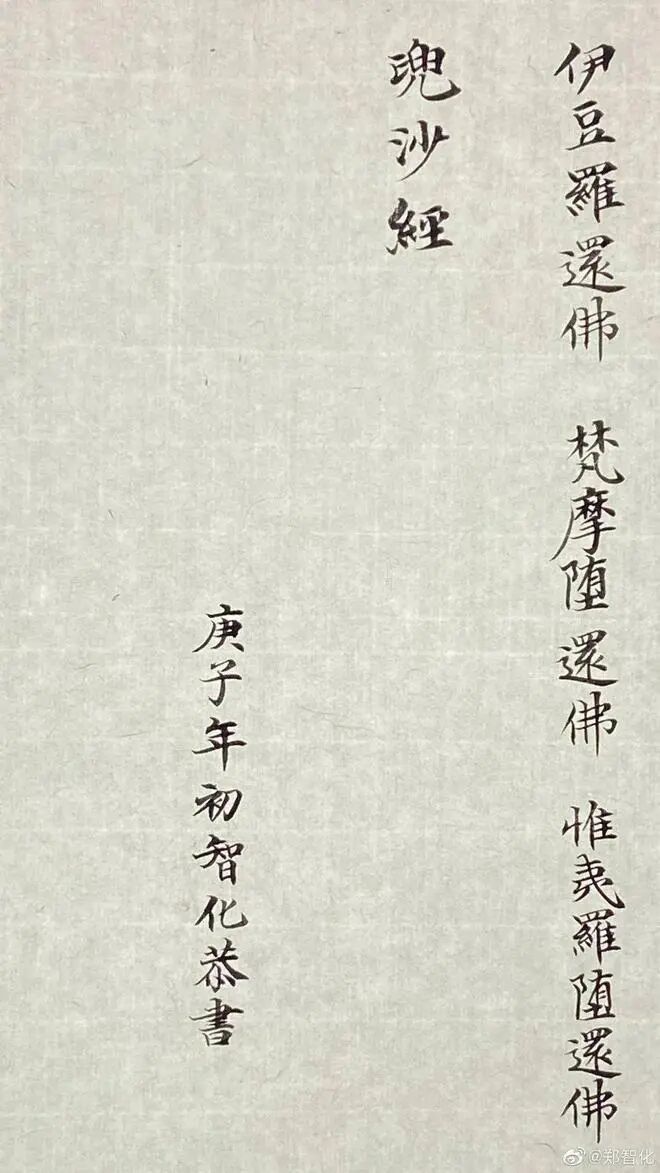 伊豆羅還佛 梵摩墮還佛 惟夷羅墮還佛
兜沙經
庚子年初智化恭書
@郑智化